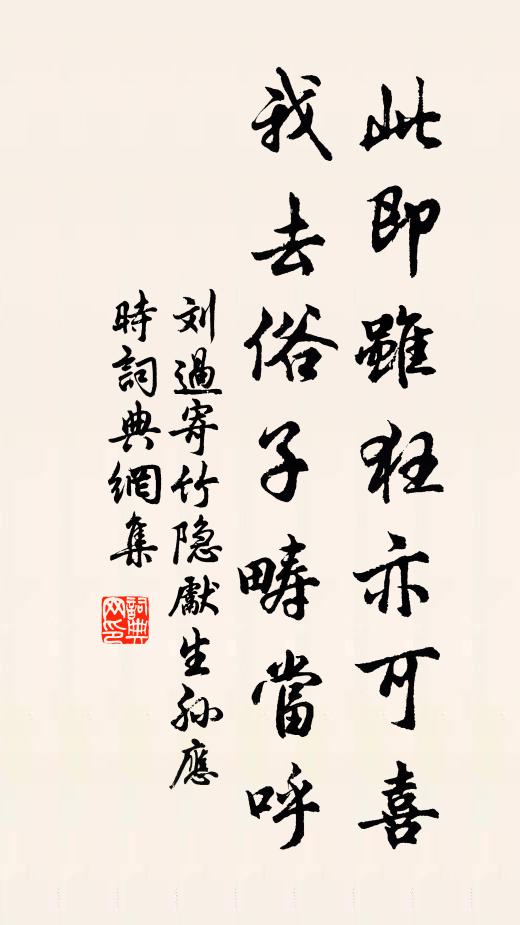 此即雖狂亦可喜
我去俗子疇當呼
刘過寄竹隐獻生孙應
時詞典網集
詞典
网印